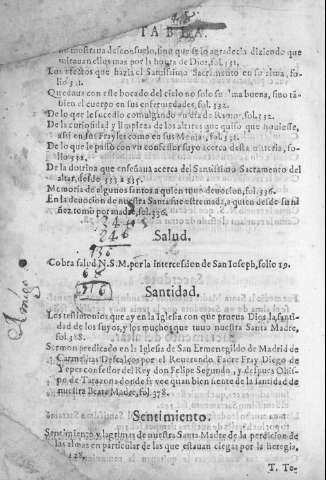 TABLA.
no mostraua desconsuelo, sino que se lo agradecia diziendo que
mirauan ellas mas por la honra de Dios, fol. 531.
Los efectos que hazia el Santissimo Sacramento en su alma, fo-
lio 531.
Quedaua con este bocado del cielo no solo su alma buena, sino tã-
bien el cuerpo en sus enfermedades, fol. 532.
De lo que le sucedio comulgando un dia de Ramos, fol. 532.
De la curiosidad y limpieza de los altares que quiso que houiesse,
assi en sus Frayles como en sus Monjas, fol. 531.
De lo que le passò con vn confessor suyo acerca desta materia, fo-
lio 532.
De la dotrina que enseñaua acerca del Santissimo Sacramento del
altar, desde 533 a 535.
Memoria de algunos santos a quien tuuo deuocion, fol. 536.
En la deuocion de nuestra Santa fue estremada, a quien desde su ni
ñez tomo por madre, fol. 536.
246
936
Salud.
Cobra salud N. S. M. por la intercession de San Ioseph, folio 19.
916
Amigo
Santidad.
Los testimonios que ay en la Iglesia con que prueua Dios la santi-
dad de los suyos, y los muchos que tuuo nuestra Santa Madre,
fol. 368.
Sermon predicado en la Iglesia de San Ermenegildo de Madrid de
Carmelitas Descalços por el Reuerendo Padre Fray Diego de
Yepes confessor del Rey don Felipe Segundo, y despues Obis-
po de Tarazona donde se vee quan bien siente de la santidad de
nuestra Beata Madre, fol. 378.
Sentimiento.
Sentimiento y lagrimas de nuestra Santa Madre de la perdicion de
las almas en particular de las que estauan ciegas por la heregia,
128.
T. Te-